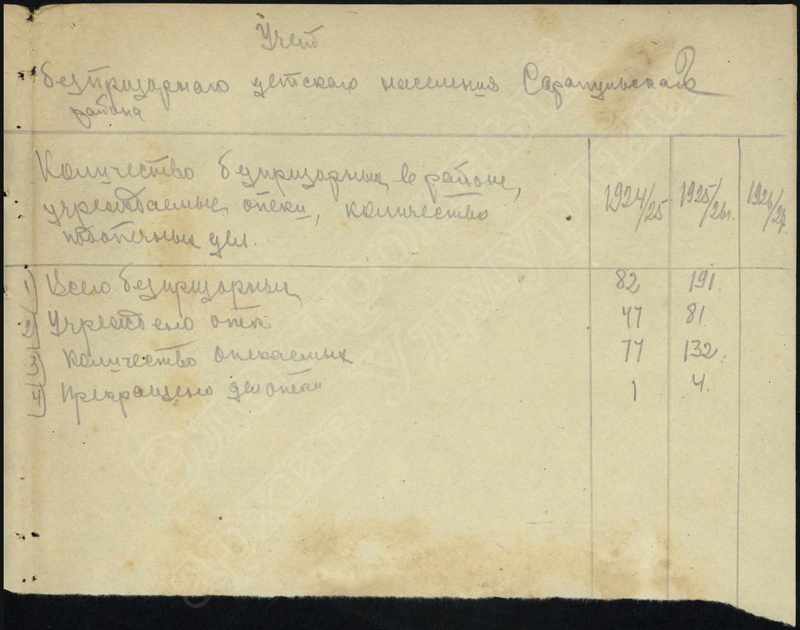 Учет
безпризорного детского населения Сарапульского
района
Количество безпризорных в районе, 1924/25 1925/26г. 1926/27
учреждаемые опеки, количество
подопечных дел.
1) Всего безпризорных 82 191
2) Учреждено опек 47 81
3) Количество опекаемых 77 132
4) Прекращено дел опеки 1 4